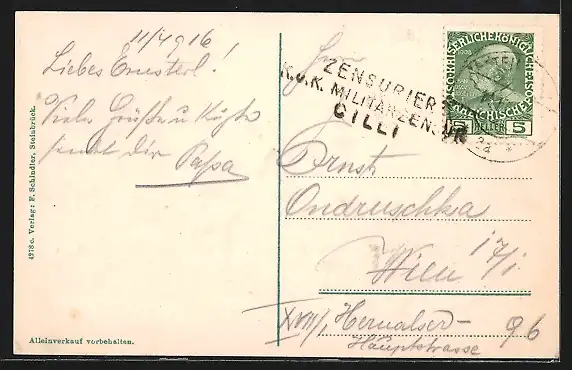 11/4 916
Liebes Ernsterl!
Viele Grüße u Küße
sendet dir Papa
4278 c. Verlag: F. Schindler, Steinbrück.
Alleinverkauf vorbehalten.
ZENSURIERT
K.u.K. MILITÄRZENSUR
CILLI
KAISERLICHE KÖNIGLICHE
ÖSTERREICHISCHE POST
5 HELLER 5
Ernst
Ondruschka
Wien 17/1
XVII/1 Hernalser-
Hauptstrasse 96